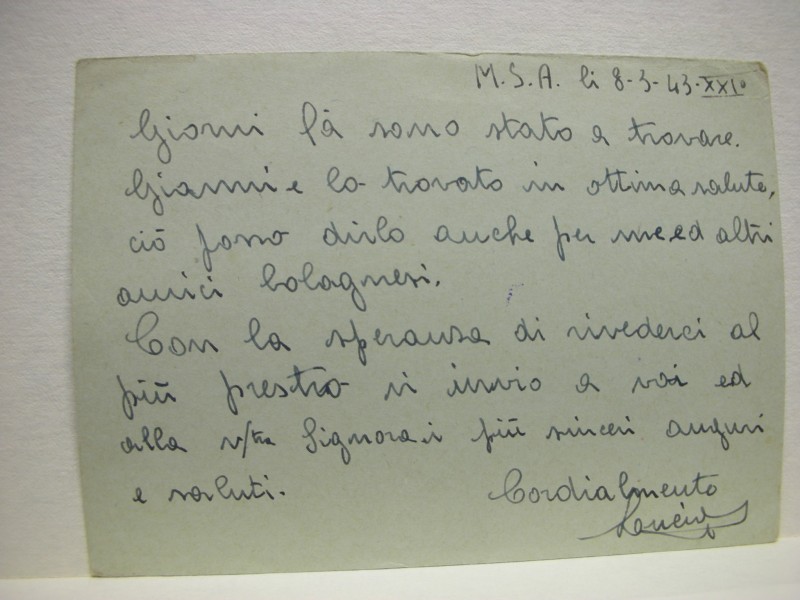 M.S.A. li 8-3-43-XXI°
Giorni fà sono stato a trovare
Gianni e lo trovato in ottima salute,
ciò posso dirlo anche per me ed altri
amici bolognesi.
Con la speranza di rivederci al
più prestro vi invio a voi ed
alla v/tra Signora i più sinceri auguri
e saluti.
Cordialmente